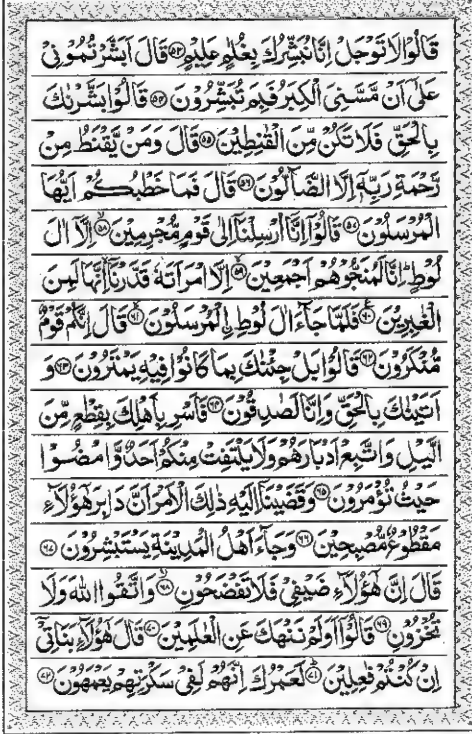 قَالُوْا لَا تَوْجَلْ اِنَّا نُبَشِّرُكَ بِغُلٰمٍ عَلِيْمٍ ﴿۵۳﴾ قَالَ اَبَشَّرْتُمُوْنِيْ
عَلٰٓى اَنْ مَّسَّنِيَ الْكِبَرُ فَبِمَ تُبَشِّرُوْنَ ﴿۵۴﴾ قَالُوْا بَشَّرْنٰكَ
بِالْحَقِّ فَلَا تَكُنْ مِّنَ الْقٰنِطِيْنَ ﴿۵۵﴾ قَالَ وَمَنْ يَّقْنَطُ مِنْ
رَّحْمَةِ رَبِّهٖٓ اِلَّا الضَّآلُّوْنَ ﴿۵۶﴾ قَالَ فَمَا خَطْبُكُمْ اَيُّهَا
الْمُرْسَلُوْنَ ﴿۵۷﴾ قَالُوْٓا اِنَّآ اُرْسِلْنَآ اِلٰى قَوْمٍ مُّجْرِمِيْنَ ﴿۵۸﴾ اِلَّآ اٰلَ
لُوْطٍ ؕ اِنَّا لَمُنَجُّوْهُمْ اَجْمَعِيْنَ ﴿۵۹﴾ اِلَّا امْرَاَتَهٗ قَدَّرْنَآ ۙ اِنَّهَا لَمِنَ
الْغٰبِرِيْنَ ﴿۶۰﴾ فَلَمَّا جَآءَ اٰلَ لُوْطِ ۨ الْمُرْسَلُوْنَ ﴿۶۱﴾ قَالَ اِنَّكُمْ قَوْمٌ
مُّنْكَرُوْنَ ﴿۶۲﴾ قَالُوْا بَلْ جِئْنٰكَ بِمَا كَانُوْا فِيْهِ يَمْتَرُوْنَ ﴿۶۳﴾ وَ
اَتَيْنٰكَ بِالْحَقِّ وَاِنَّا لَصٰدِقُوْنَ ﴿۶۴﴾ فَاَسْرِ بِاَهْلِكَ بِقِطْعٍ مِّنَ
الَّيْلِ وَاتَّبِعْ اَدْبَارَهُمْ وَلَا يَلْتَفِتْ مِنْكُمْ اَحَدٌ وَّامْضُوْا
حَيْثُ تُؤْمَرُوْنَ ﴿۶۵﴾ وَقَضَيْنَآ اِلَيْهِ ذٰلِكَ الْاَمْرَ اَنَّ دَابِرَ هٰٓؤُلَآءِ
مَقْطُوْعٌ مُّصْبِحِيْنَ ﴿۶۶﴾ وَجَآءَ اَهْلُ الْمَدِيْنَةِ يَسْتَبْشِرُوْنَ ﴿۶۷﴾
قَالَ اِنَّ هٰٓؤُلَآءِ ضَيْفِيْ فَلَا تَفْضَحُوْنِ ﴿۶۸﴾ وَاتَّقُوا اللّٰهَ وَلَا
تُخْزُوْنِ ﴿۶۹﴾ قَالُوْٓا اَوَلَمْ نَنْهَكَ عَنِ الْعٰلَمِيْنَ ﴿۷۰﴾ قَالَ هٰٓؤُلَآءِ بَنٰتِيْٓ
اِنْ كُنْتُمْ فٰعِلِيْنَ ﴿۷۱﴾ لَعَمْرُكَ اِنَّهُمْ لَفِيْ سَكْرَتِهِمْ يَعْمَهُوْنَ ﴿۷۲﴾